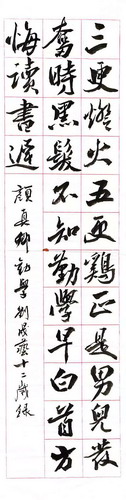 三更燈火五更鷄正是男兒發
奮時黑髮不知勤學早白首方
悔讀書遲
顏真卿勤學劉藝十二歲錄